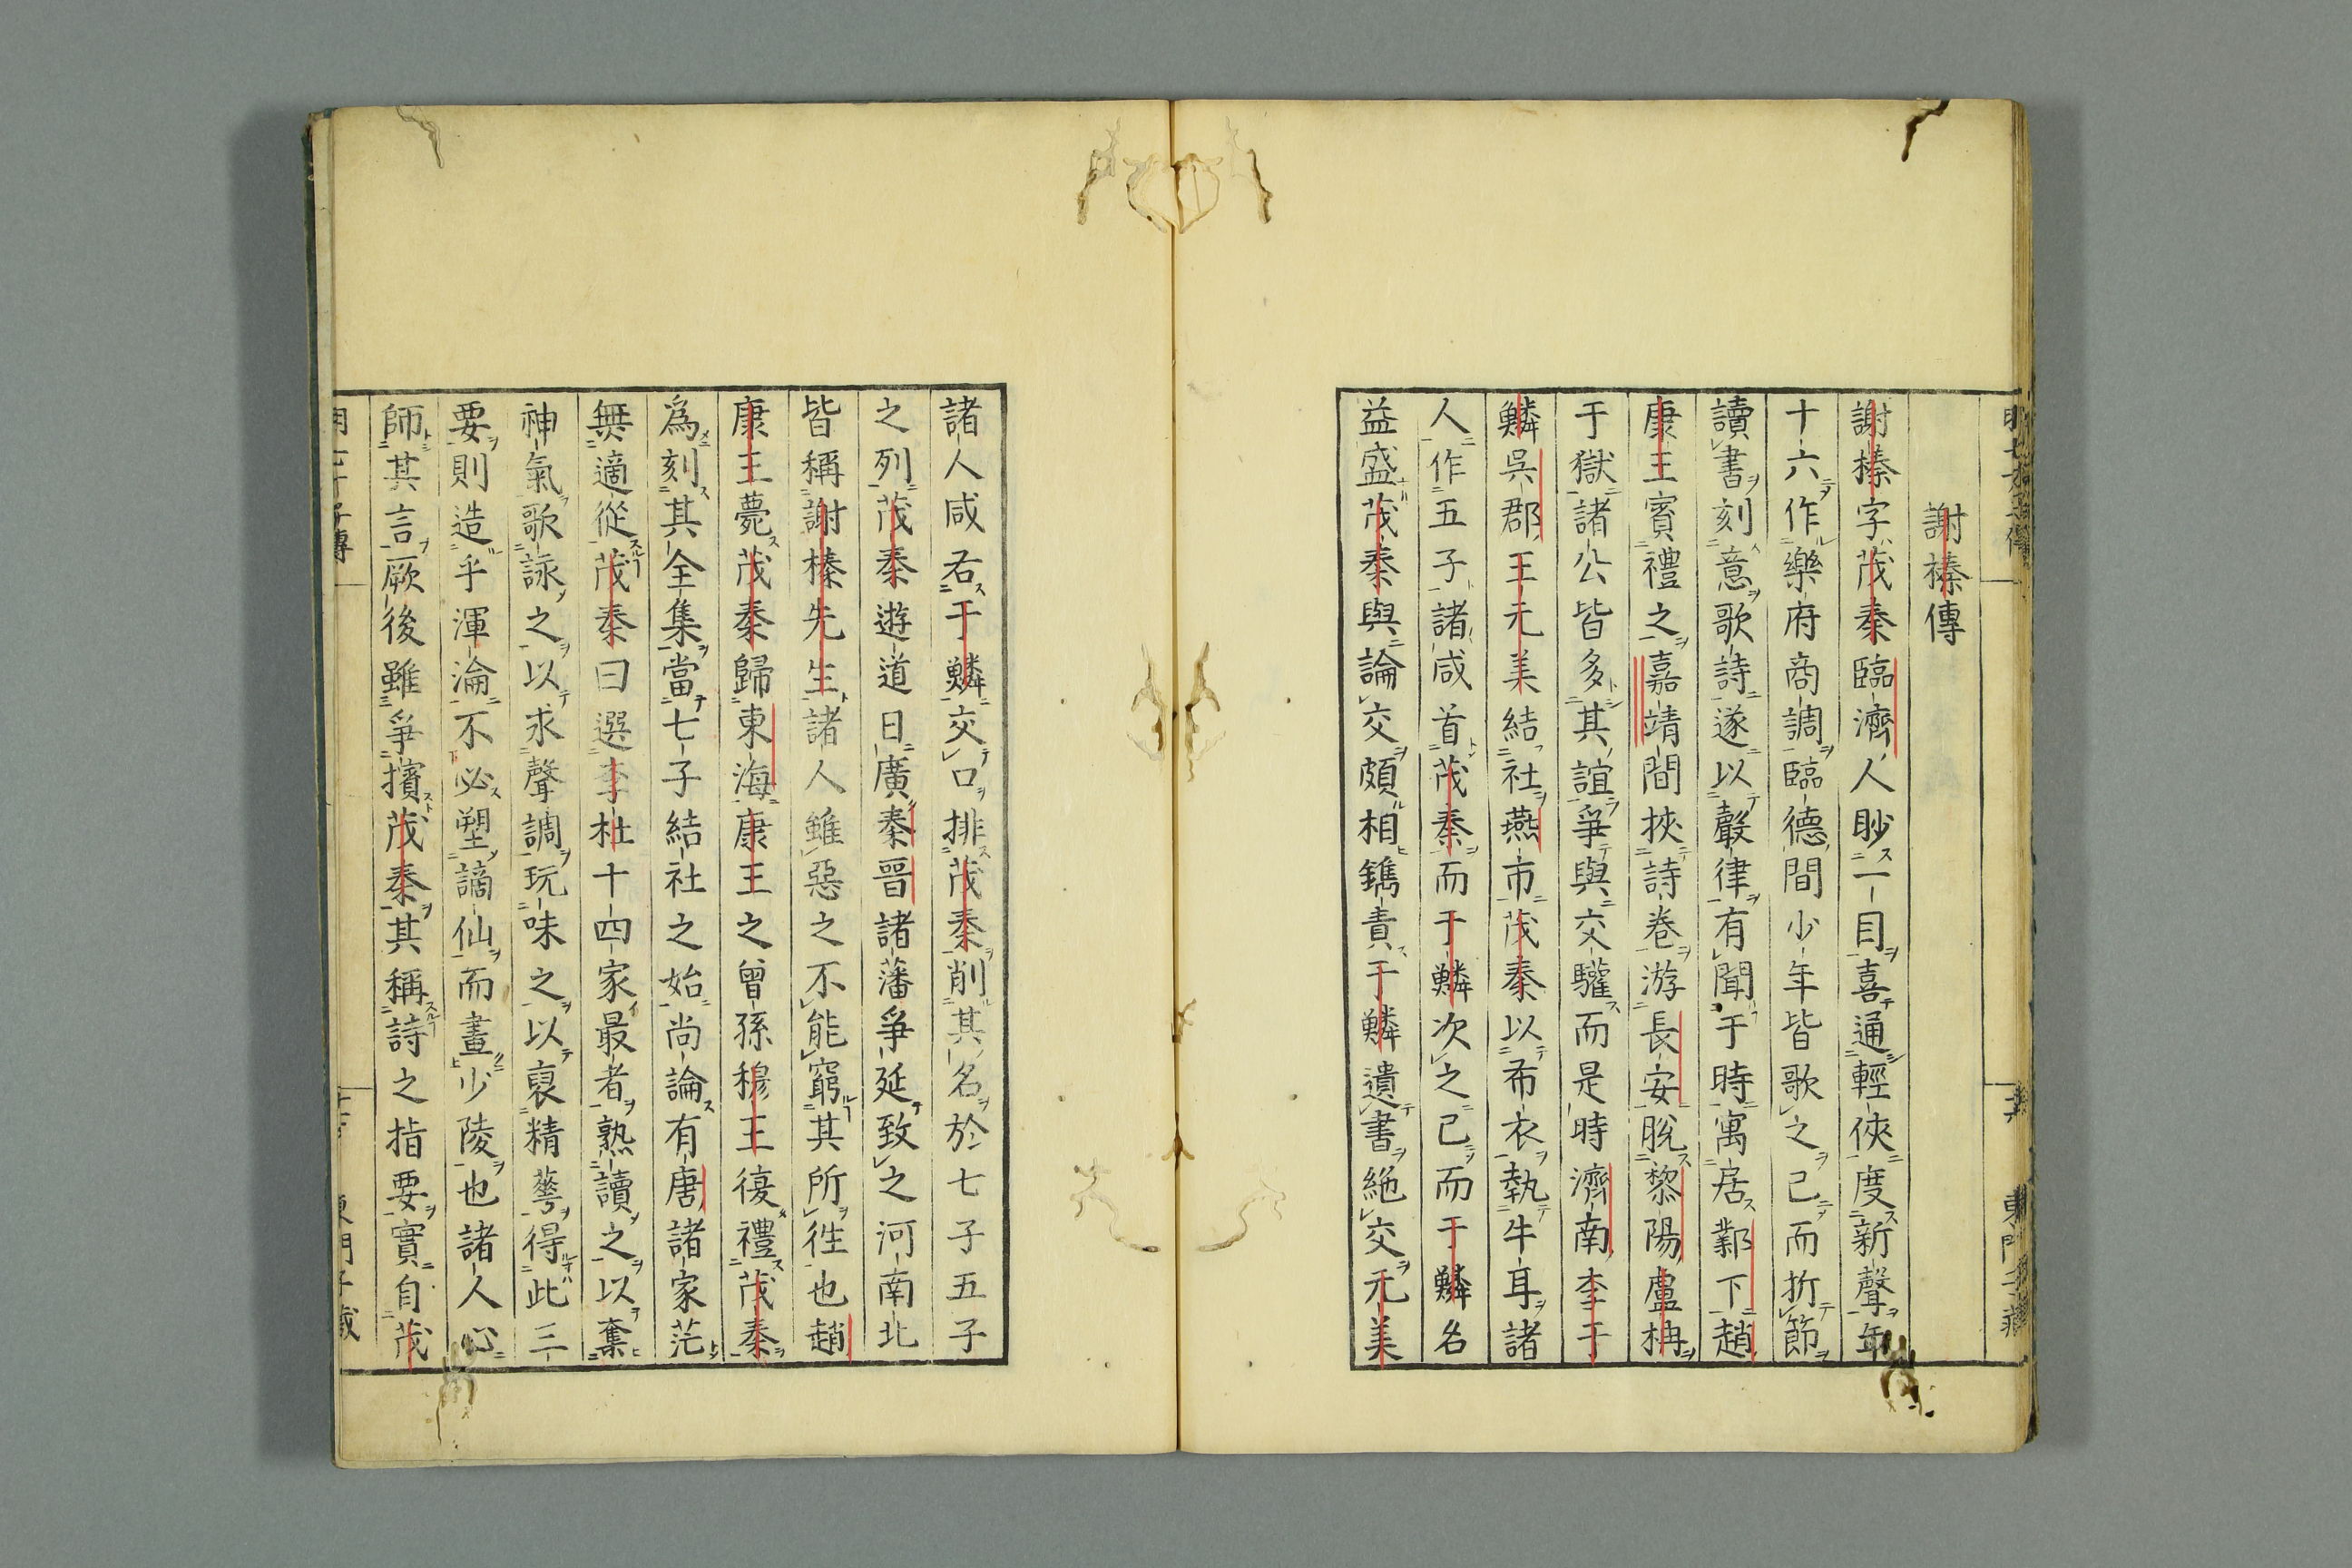 謝榛傳
謝榛字茂秦臨濟人眇一目喜通輕俠度新聲年
十六作樂府商調臨德間少年皆歌之已而折節
讀書刻意歌詩遂以聲律有聞于時寓居鄴下趙
康王賓禮之嘉靖間挾詩卷游長安脫黎陽盧柟
于獄諸公皆多其誼爭與交驩而是時濟南李于
鱗吳郡王元美結社燕市茂秦以布衣執牛耳諸
人作五子諸咸首茂秦而于鱗次之已而于鱗名
益盛茂秦與論交頗相鐫責于鱗遺書絶交元美
諸人咸右于鱗交口排茂秦削其名於七子五子
之列茂秦遊道日廣秦晋諸藩爭延致之河南北
皆稱謝榛先生諸人雖惡之不能窮其所徃也趙
康王薨茂秦歸東海康王之曾孫穆王復禮茂秦
爲刻其全集當七子結社之始尚論有唐諸家茫
無適從茂秦曰選李杜十四家最者熟讀之以奪
神氣歌詠之以求聲調玩味之以裒精華得此三
要則造乎渾淪不必塑謫仙而畫少陵也諸人心
師其言厥後雖爭擯茂秦其稱詩之指要實自茂